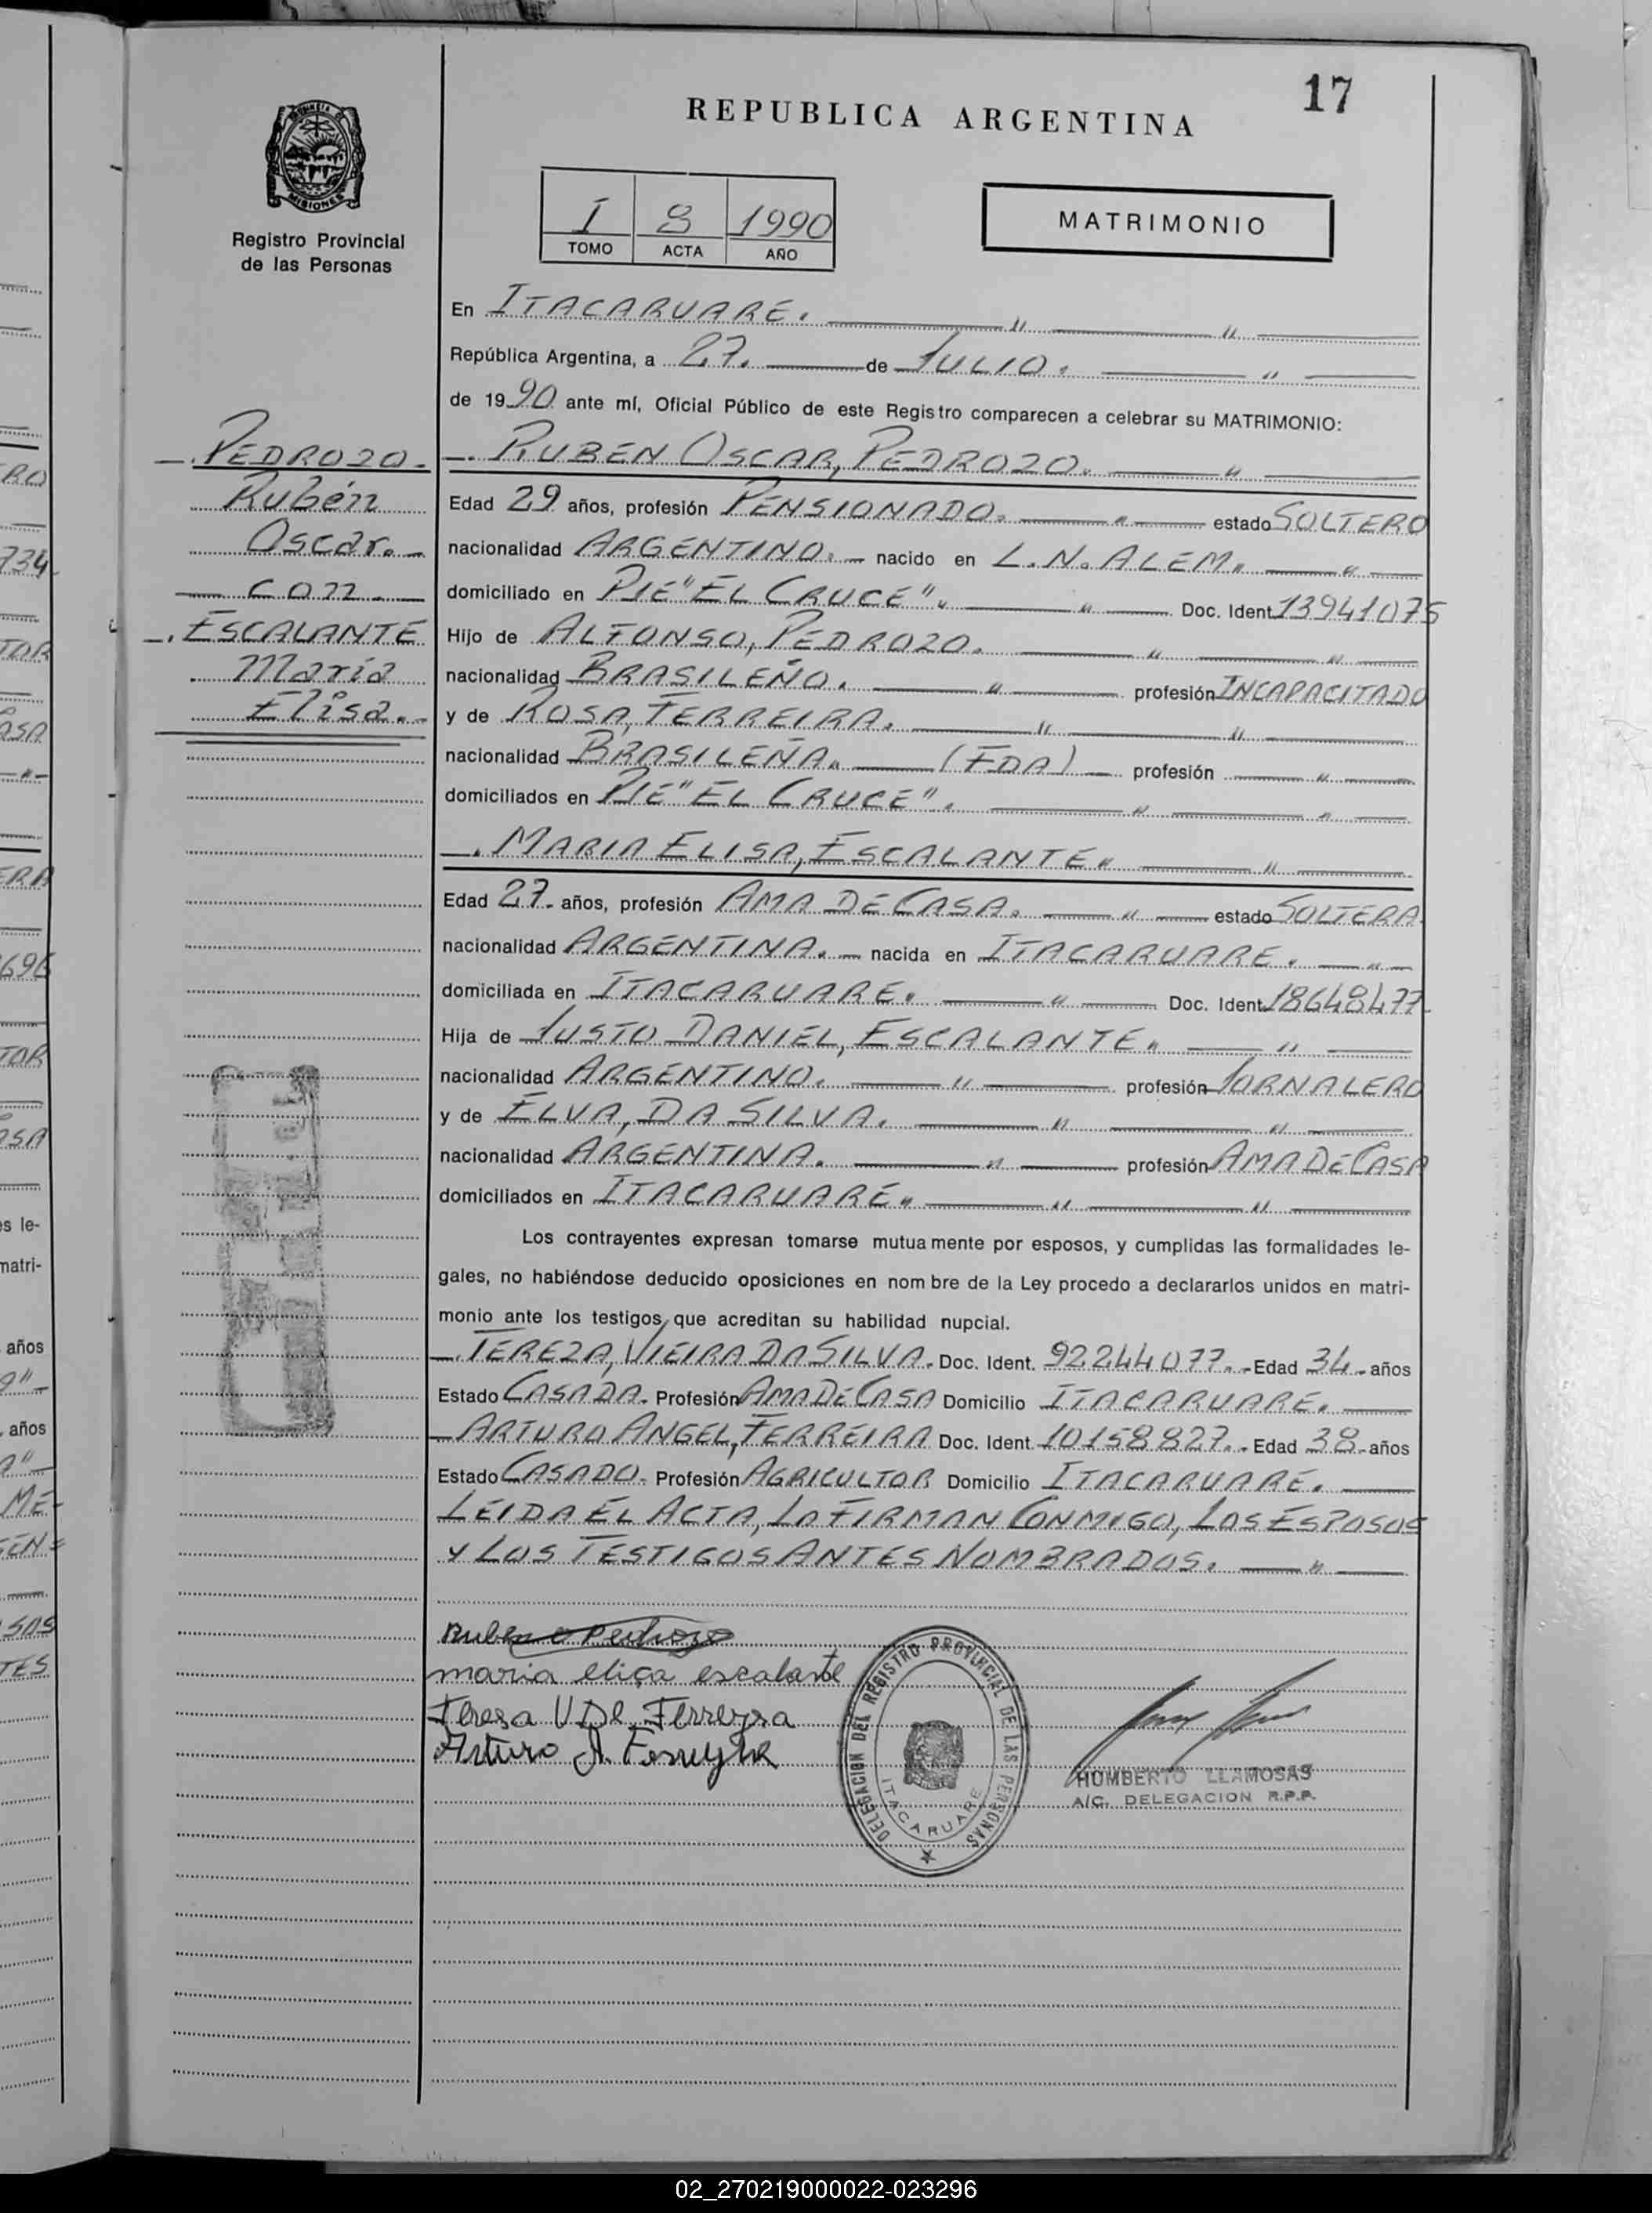 17
REPUBLICA ARGENTINA
PROVINCIA D MISIONES
Registro Provincial
de las Personas
I 8 1990
TOMO ACTA AÑO
MATRIMONIO
En ITACARUARÉ.
República Argentina, a 27. de JULIO.
de 1990 ante mí, Oficial Público de este Registro comparecen a celebrar su MATRIMONIO:
PEDROZO.
Rubén
Oscar.
con.
ESCALANTE
María
Elisa.
RUBEN OSCAR, PEDROZO.
Edad 29 años, profesión PENSIONADO. estado SOLTERO
nacionalidad ARGENTINO. nacido en L.N.ALEM.
domiciliado en PJE"EL CRUCE". Doc. Ident. 13941075
Hijo de ALFONSO, PEDROZO.
nacionalidad BRASILEÑO. profesión INCAPACITADO
y de ROSA, FERREIRA.
nacionalidad BRASILEÑA. (FDA) profesión
domiciliados en PJE"EL CRUCE".
MARIA ELISA, ESCALANTE.
Edad 27. años, profesión AMA DE CASA. estado SOLTERA.
nacionalidad ARGENTINA. nacida en ITACARUARE.
domiciliada en ITACARUARE. Doc. Ident. 18648477
Hija de JUSTO DANIEL, ESCALANTE.
nacionalidad ARGENTINO. profesión JORNALERO
y de ELVA, DA SILVA.
nacionalidad ARGENTINA. profesión AMA DE CASA
domiciliados en ITACARUARÉ.
Los contrayentes expresan tomarse mutuamente por esposos, y cumplidas las formalidades le-
gales, no habiéndose deducido oposiciones en nombre de la Ley procedo a declararlos unidos en matri-
monio ante los testigos, que acreditan su habilidad nupcial.
TEREZA, VIEIRA DA SILVA. Doc. Ident. 92244077. Edad 34 años
Estado CASADA. Profesión AMA DE CASA Domicilio ITACARUARÉ.
ARTURO ANGEL, FERREIRA Doc. Ident. 10158827. Edad 38 años
Estado CASADO. Profesión AGRICULTOR Domicilio ITACARUARÉ.
LEIDA EL ACTA, LA FIRMAN CONMIGO, LOS ESPOSOS
Y LOS TESTIGOS ANTES NOMBRADOS.
Ruben O Pedrozo
maria eliça escalante
Teresa V De Ferreyra
Arturo A. Ferreyra
DELEGACION DEL REGISTRO PROVINCIAL DE LAS PERSONAS
ITACARUARE
HUMBERTO LLAMOSAS
A/C. DELEGACION R.P.P.
02_270219000022-023296